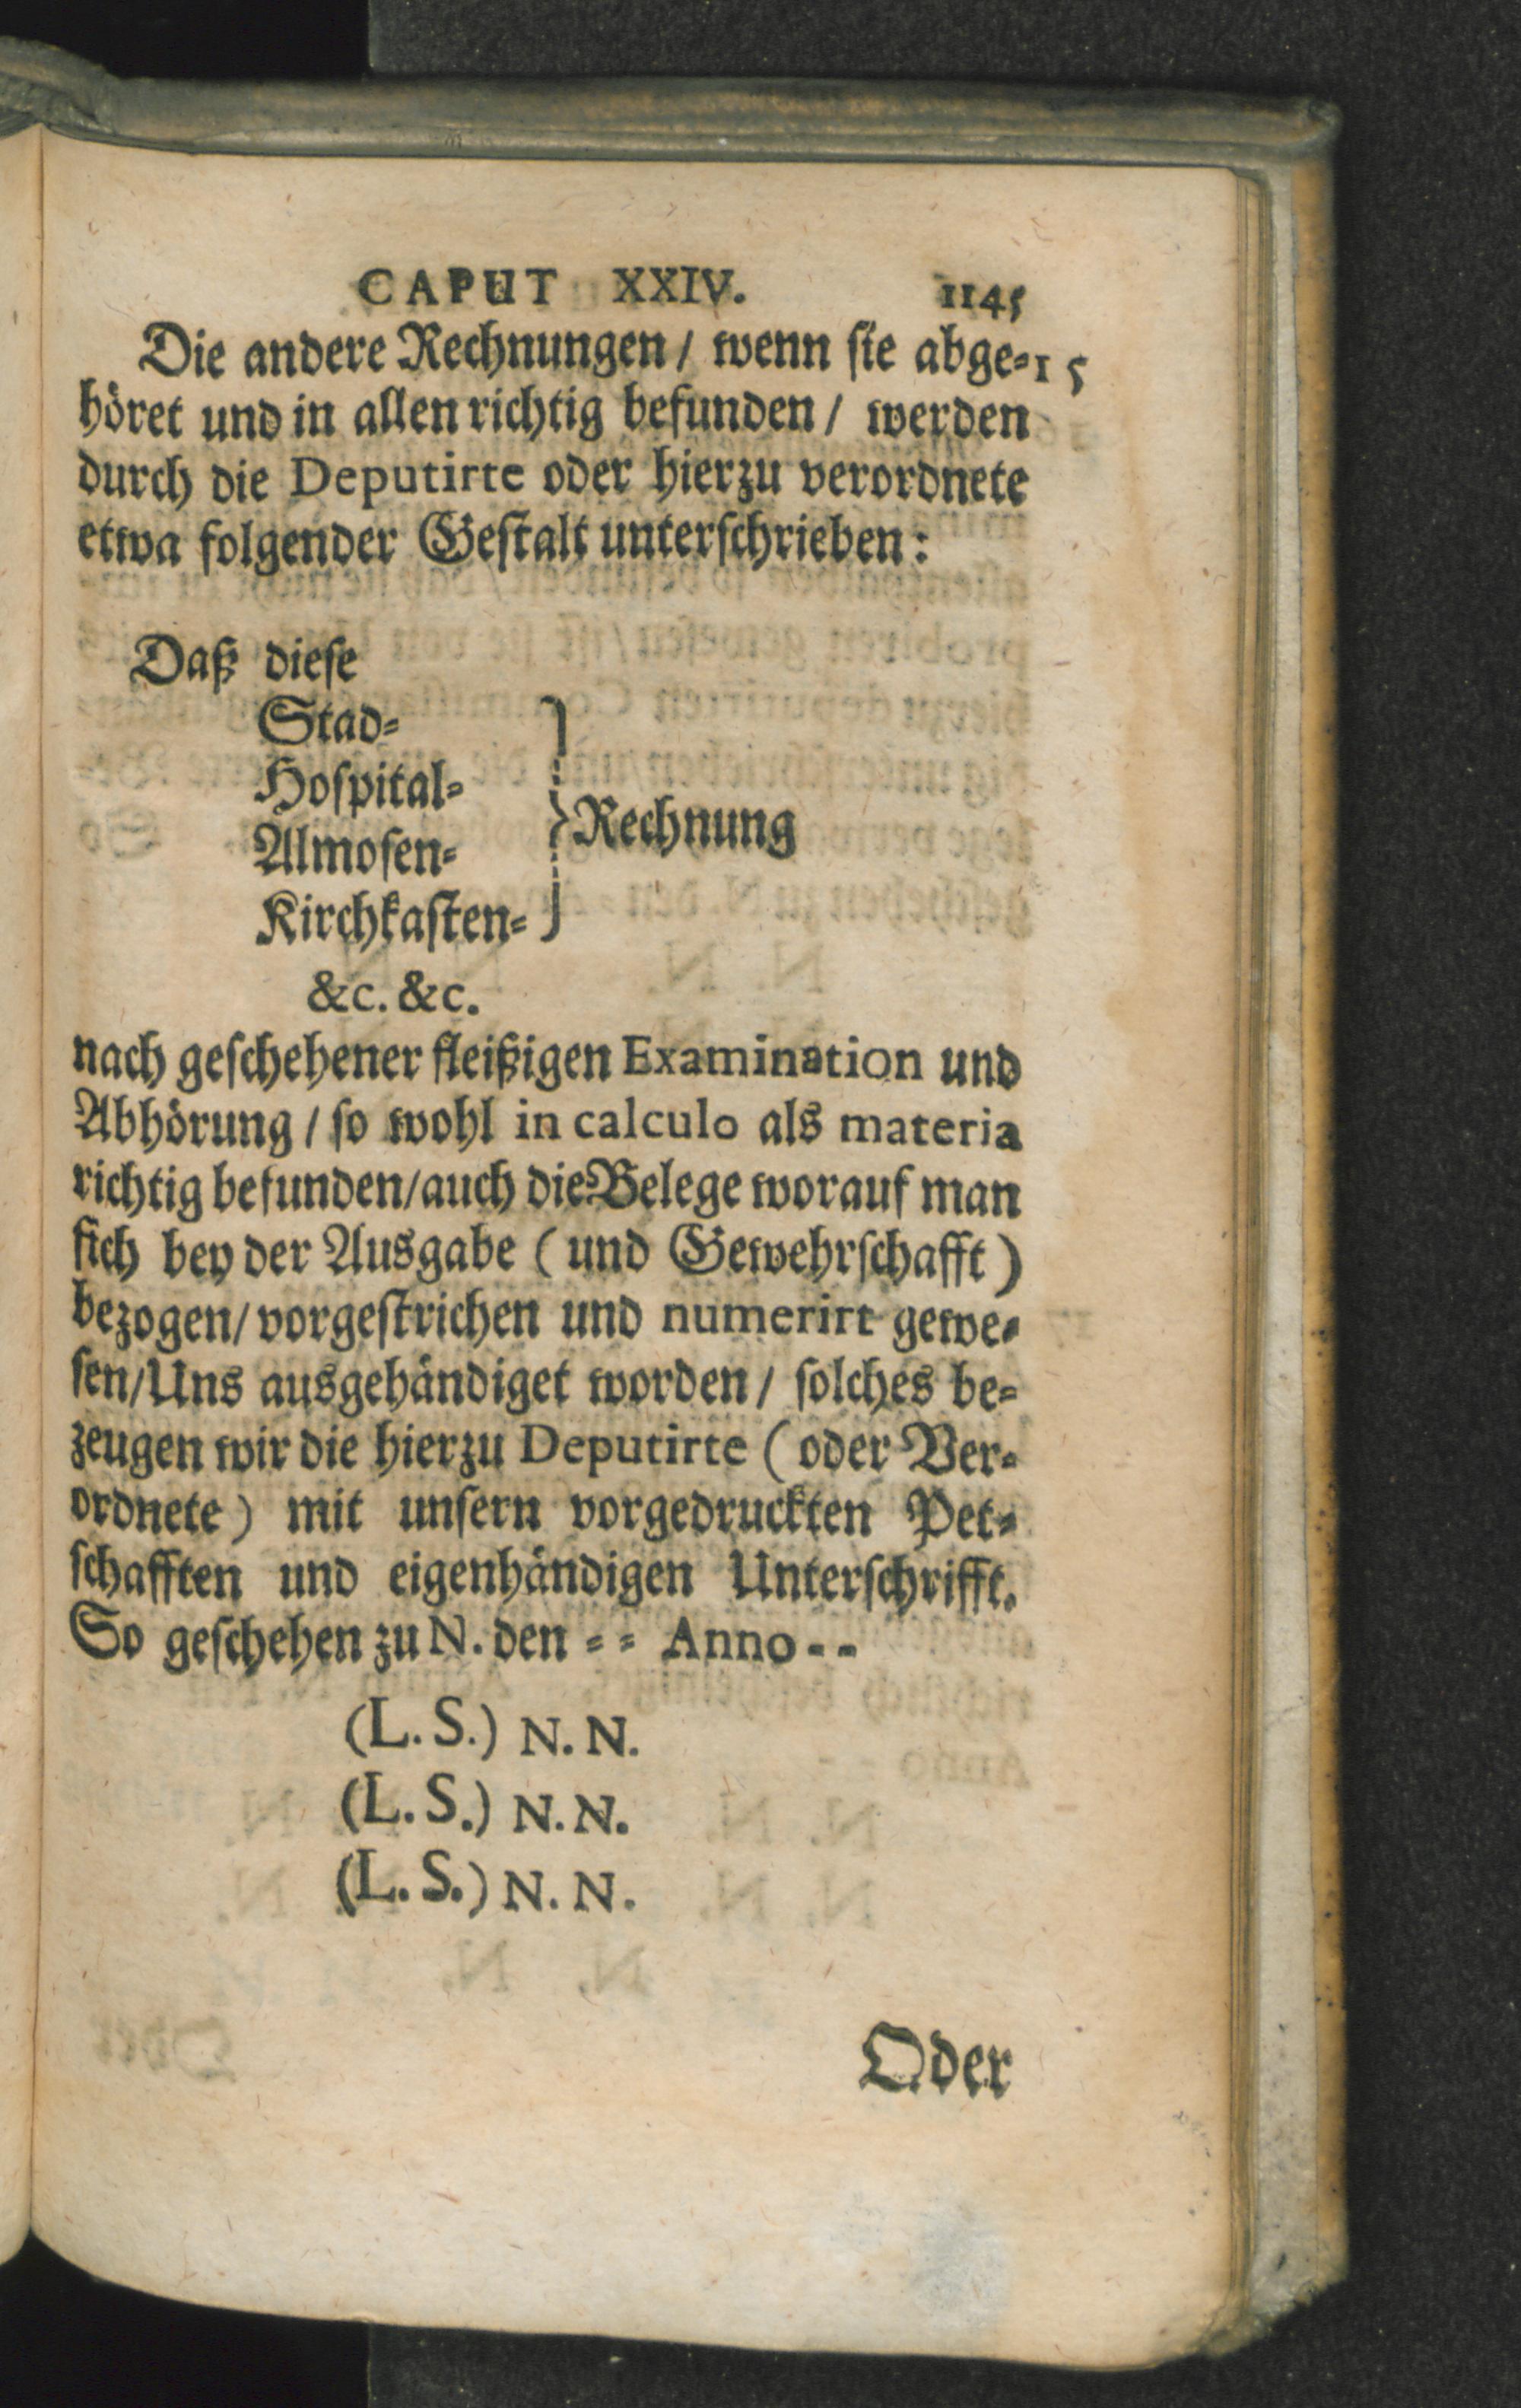 CAPUT XXIV. 1145
Die andere Rechnungen / wenn sie abge= 15
höret und in allen richtig befunden / werden
durch die Deputirte oder hierzu verordnete
etwa folgender Gestalt unterschrieben:
Daß diese
Stad=
Hospital=
Almosen=
Rechnung
Kirchkasten=
&c. &c.
nach geschehener fleißigen Examination und
Abhörung / so wohl in calculo als materia
richtig befunden/auch die Belege worauf man
sich bey der Ausgabe (und Gewehrschafft)
bezogen/ vorgestrichen und numerirt gewe=
sen/Uns ausgehändiget worden / solches be=
zeugen wir die hierzu Deputirte (oder Ver=
ordnete) mit unsern vorgedruckten Pet=
schafften und eigenhändigen Unterschrifft.
So geschehen zu N. den = = Anno - -
(L. S.) N. N.
(L. S.) N. N.
(L. S.) N. N.
Oder